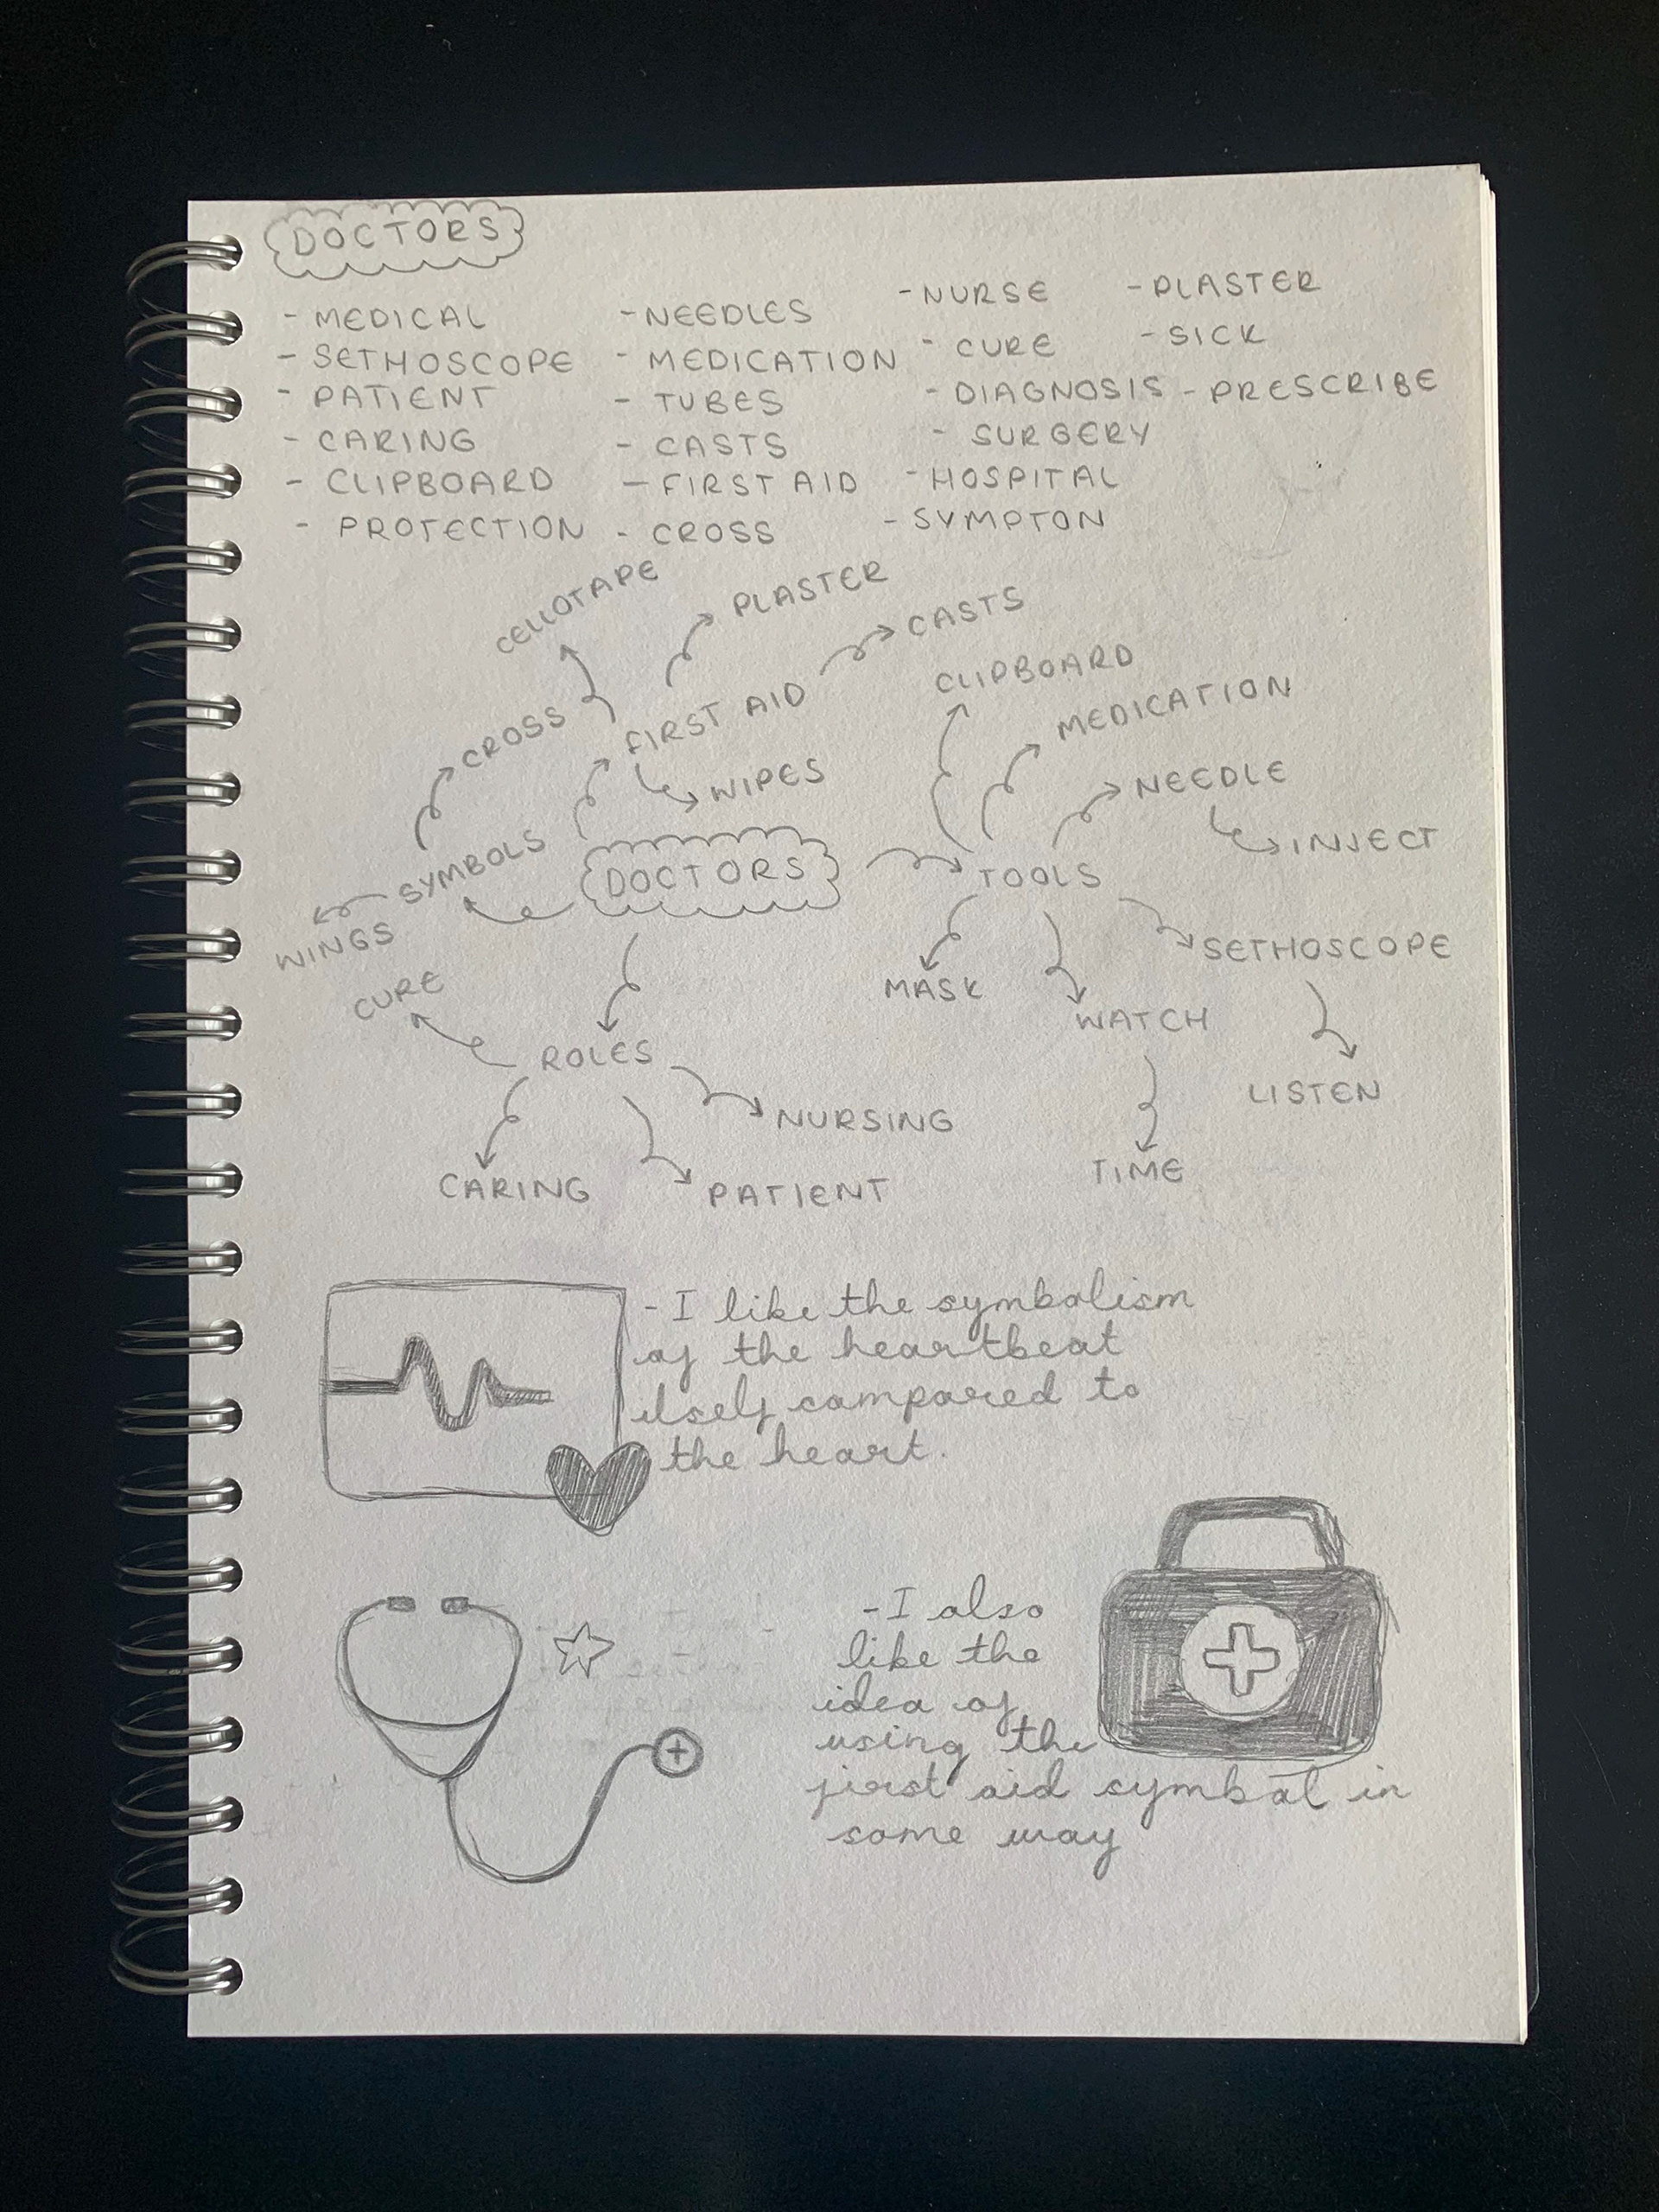 DOCTORS
- MEDICAL
- SETHOSCOPE
- PATIENT
- CARING
- CLIPBOARD
- PROTECTION
- NEEDLES
- MEDICATION
- TUBES
- CASTS
- FIRST AID
- CROSS
- NURSE
- CURE
- DIAGNOSIS
- SURGERY
- HOSPITAL
- SYMPTON
- PLASTER
- SICK
- PRESCRIBE
CELLOTAPE
PLASTER
CASTS
CROSS
FIRST AID
WIPES
SYMBOLS
WINGS
DOCTORS
CLIPBOARD
MEDICATION
NEEDLE
INJECT
TOOLS
MASK
WATCH
SETHOSCOPE
LISTEN
TIME
CURE
ROLES
NURSING
CARING
PATIENT
- I like the symbolism
of the heartbeat
itself compared to
the heart.
- I also
like the
idea of
using the
first aid symbol in
some way